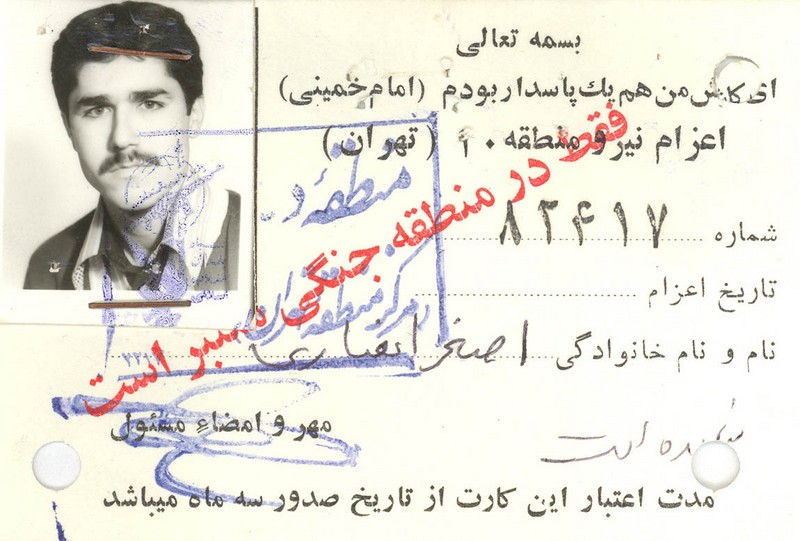 بسمه تعالی
ای کاش من هم یك پاسدار بودم (امام خمینی)
اعزام نیرو منطقه ۱۰ (تهران)
شماره ۸۲۴۱۷
تاریخ اعزام
نام و نام خانوادگی اصغر انصاری
فقط در منطقه جنگی معتبر است
منطقه
مرکز منطقه تهران
مهر و امضاء مسئول
است
مدت اعتبار این کارت از تاریخ صدور سه ماه میباشد